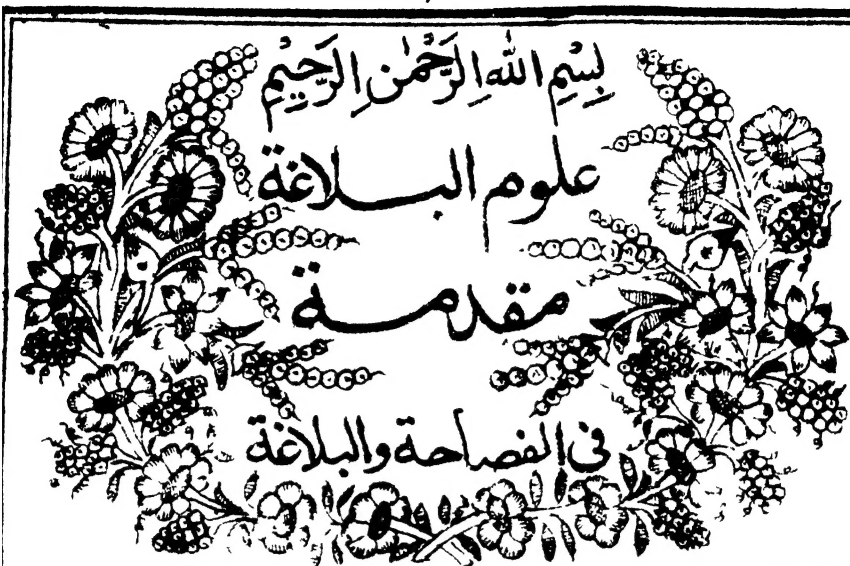 بِسْمِ اللهِ الرَّحْمٰنِ الرَّحِيْمِ
علوم البلاغة
مقدمة
في الفصاحة والبلاغة